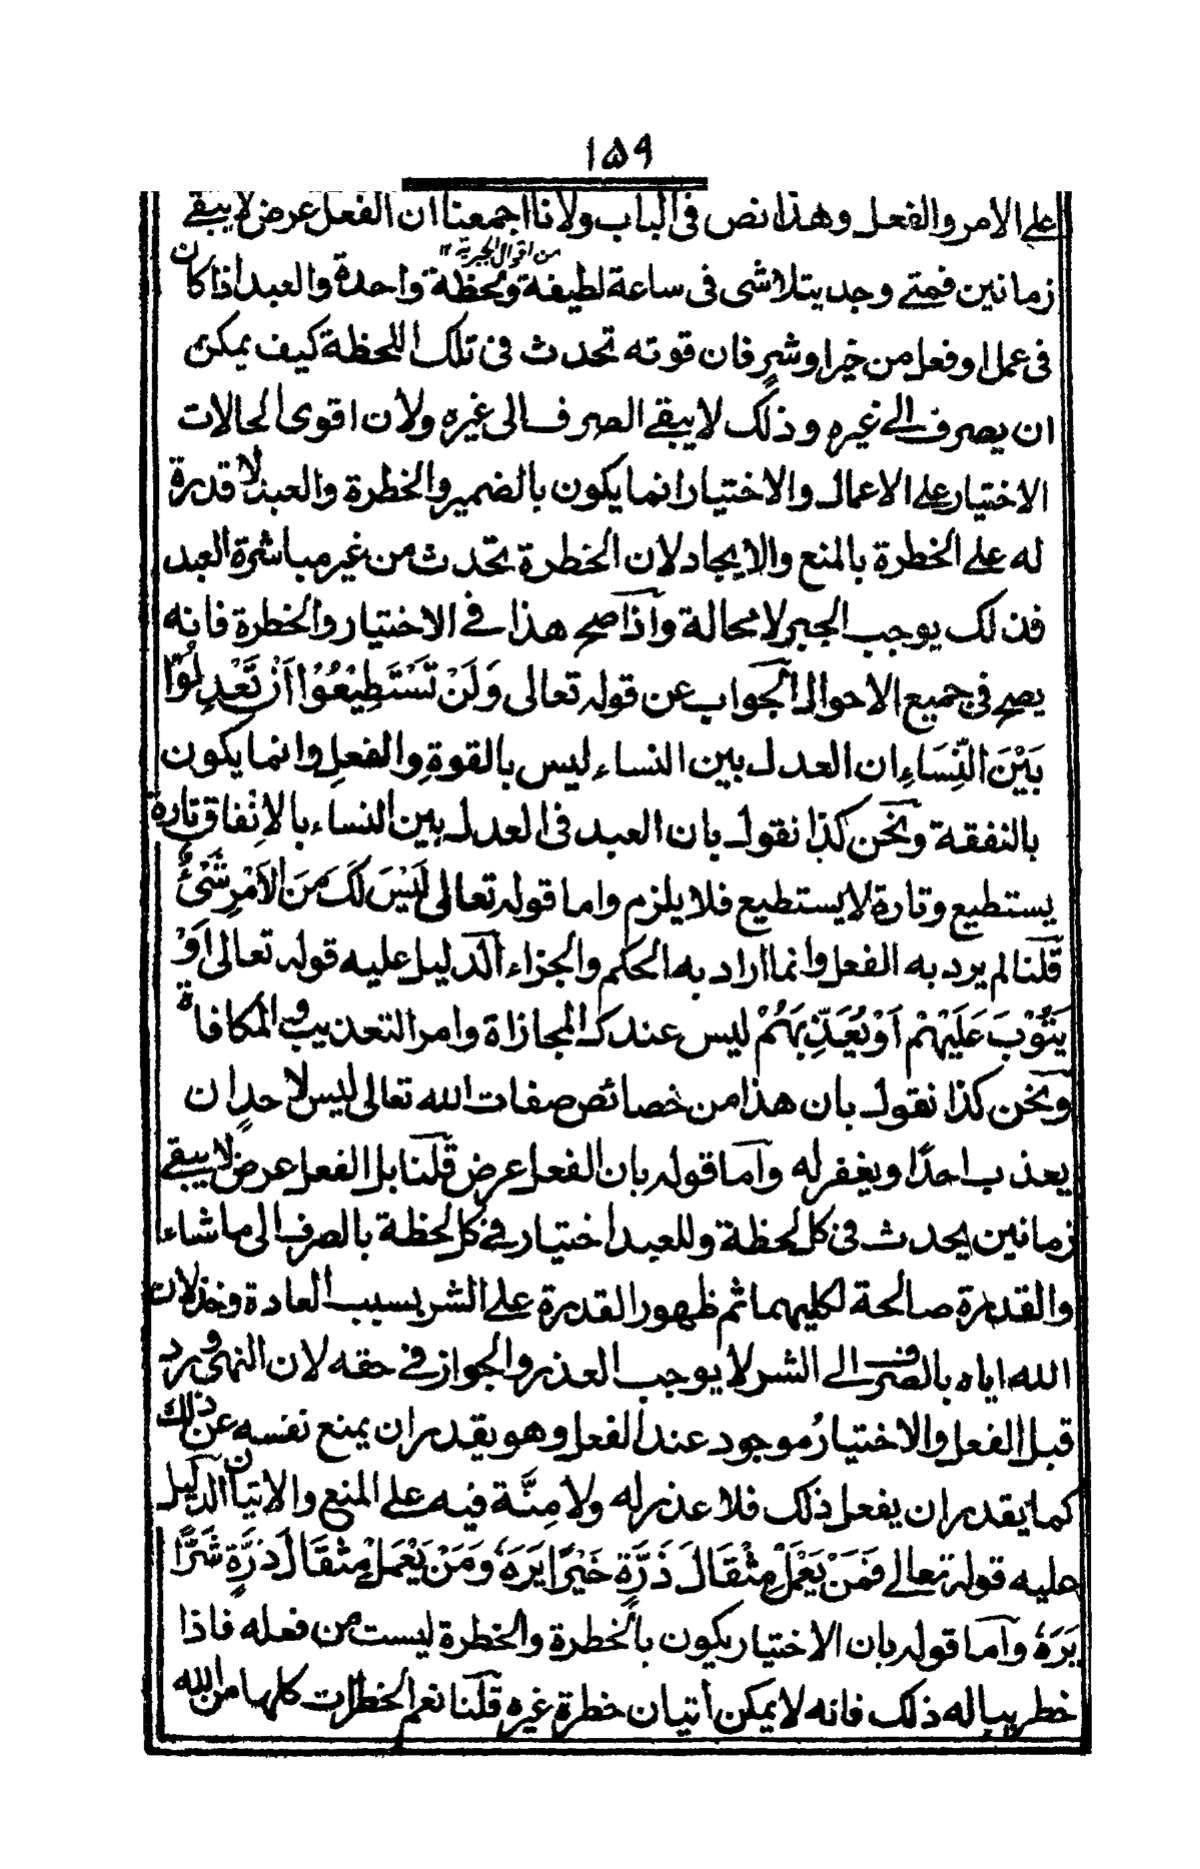 ١٥٩
على الامر والفعل وهذا نص فى الباب ولانا اجمعنا ان الفعل عرض لا يبقى
من اقوال الجبرية ١٢
زمانين فمتى وجد يتلاشى فى ساعة لطيفة ولحظة واحدة والعبد اذا كان
فى عمل او فعل من خير او شر فان قوته تحدث فى تلك اللحظة كيف يمكن
ان يصرف الى غيره وذلك لا يبقى الصرف الى غيره ولان اقوى الحالات
الاختيار على الاعمال والاختيار انما يكون بالضمير والخطرة والعبد لا قدرة
له على الخطرة بالمنع والايجاد لان الخطرة تحدث من غير مباشرة العبد
فذلك يوجب الجبر لا محالة واذا صح هذا فى الاختيار والخطرة فانه
يصح فى جميع الاحوال الجواب عن قوله تعالى وَلَنْ تَسْتَطِيْعُوْا اَنْ تَعْدِلُوْا
بَيْنَ النِّسَاءِ ان العدل بين النساء ليس بالقوة والفعل وانما يكون
بالنفقة ونحن كذا نقول بان العبد فى العدل بين النساء بالاِنفاق تارة
يستطيع وتارة لا يستطيع فلا يلزم واما قوله تعالى لَيْسَ لَكَ مِنَ الْاَمْرِ شَىْءٌ
قلنا لم يرد به الفعل وانما اراد به الحكم والجزاء الدليل عليه قوله تعالى اَوْ
يَتُوْبَ عَلَيْهِمْ اَوْ يُعَذِّبَهُمْ ليس عندك المجازاة وامر التعذيب والمكافاة
ونحن كذا نقول بان هذا من خصائص صفات الله تعالى ليس لاحد ان
يعذب احدًا ويغفر له واما قوله بان الفعل عرض قلنا بل الفعل عرض لا يبقى
زمانين يحدث فى كل لحظة وللعبد اختيار فى كل لحظة بالصرف الى ما شاء
والقدرة صالحة لكليهما ثم ظهور القدرة على الشر بسبب العادة وخذلان
الله اياه بالصرف الى الشر لا يوجب العذر والجواز فى حقه لان النهى ورد
قبل الفعل والاختيار موجود عند الفعل وهو يقدر ان يمنع نفسه عن ذلك
كما يقدر ان يفعل ذلك فلا عذر له ولا مِنَّة فيه على المنع والاتيان الدليل
عليه قوله تعالى فَمَنْ يَعْمَلْ مِثْقَالَ ذَرَّةٍ خَيْرًا يَرَهٗ وَمَنْ يَعْمَلْ مِثْقَالَ ذَرَّةٍ شَرًّا
يَرَهٗ واما قوله بان الاختيار يكون بالخطرة والخطرة ليست من فعله فاذا
خطر بباله ذلك فانه لا يمكن اتيان خطرة غيره قلنا نعم الخطرات كلها من الله